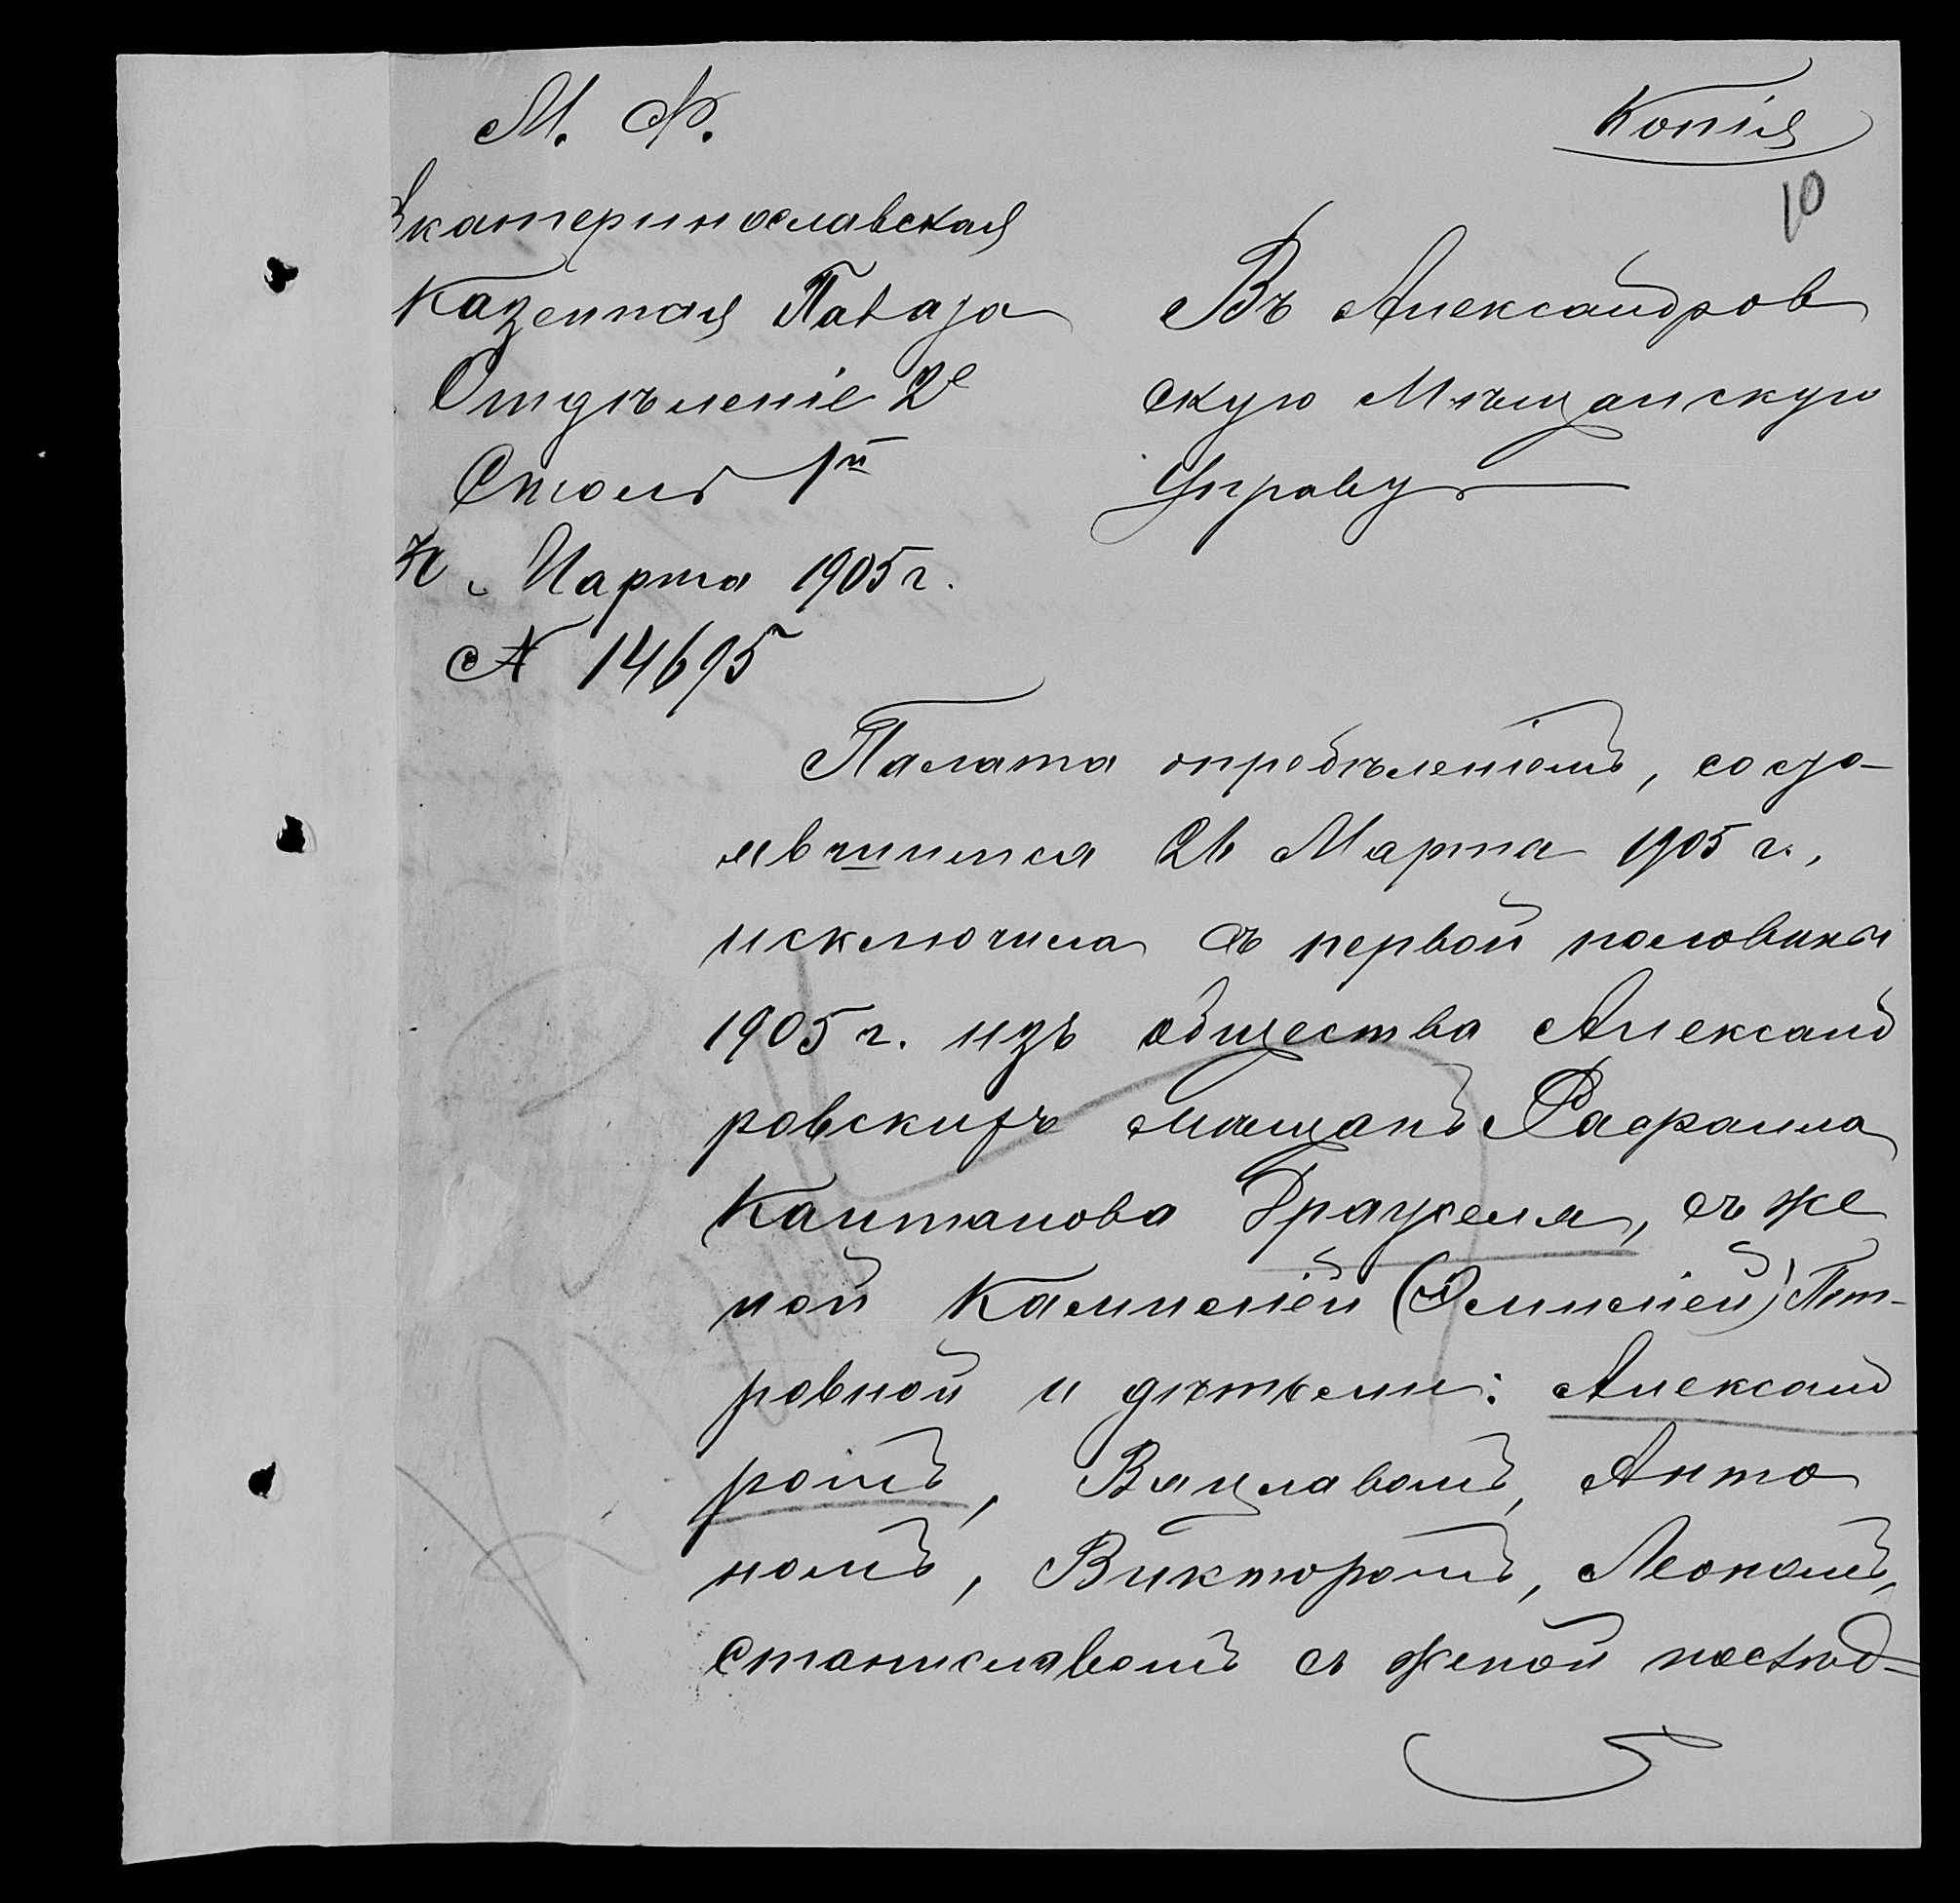 М. Ф.
Копія
10
Екатеринославская
Казенная Палата
Отдѣленіе 2е
Столъ 1й
Марта 1905 г.
№ 14695
Въ Александров
скую Мѣщанскую
Управу
Палата опредѣленіемъ, состо-
явшимся 21 Марта 1905 г.,
исключила съ первой половины
1905 г. изъ общества Александ
ровскихъ мѣщанъ Рафаила
Каитанова с же
ной Камиліей (Эмиліей) Пет-
ровной и дѣтьми: Александ
ромъ, Вацлавомъ, Анто
номъ, Викторомъ, Леономъ,
Станиславомъ съ женой послѣд=